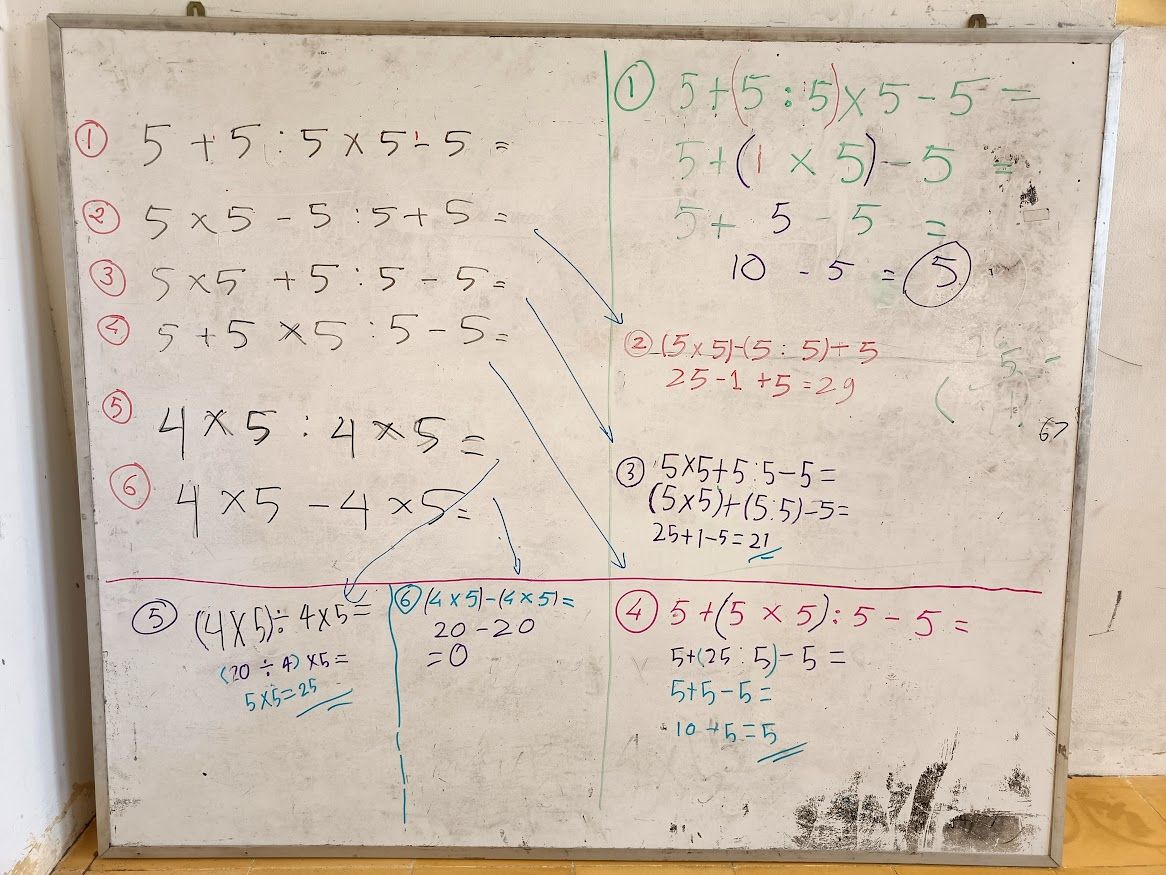 ① 5 + 5 : 5 × 5 - 5 =
② 5 × 5 - 5 : 5 + 5 =
③ 5 × 5 + 5 : 5 - 5 =
④ 5 + 5 × 5 : 5 - 5 =
⑤ 4 × 5 : 4 × 5 =
⑥ 4 × 5 - 4 × 5 =
① 5 + (5 : 5) × 5 - 5 =
5 + (1 × 5) - 5 =
5 + 5 - 5 =
10 - 5 = 5
② (5 × 5) - (5 : 5) + 5
25 - 1 + 5 = 29
③ 5 × 5 + 5 : 5 - 5 =
(5 × 5) + (5 : 5) - 5 =
25 + 1 - 5 = 21
④ 5 + (5 × 5) : 5 - 5 =
5 + (25 : 5) - 5 =
5 + 5 - 5 =
10 + 5 = 5
⑤ (4 × 5) ÷ 4 × 5 =
(20 ÷ 4) × 5 =
5 × 5 = 25
⑥ (4 × 5) - (4 × 5) =
20 - 20
= 0
67